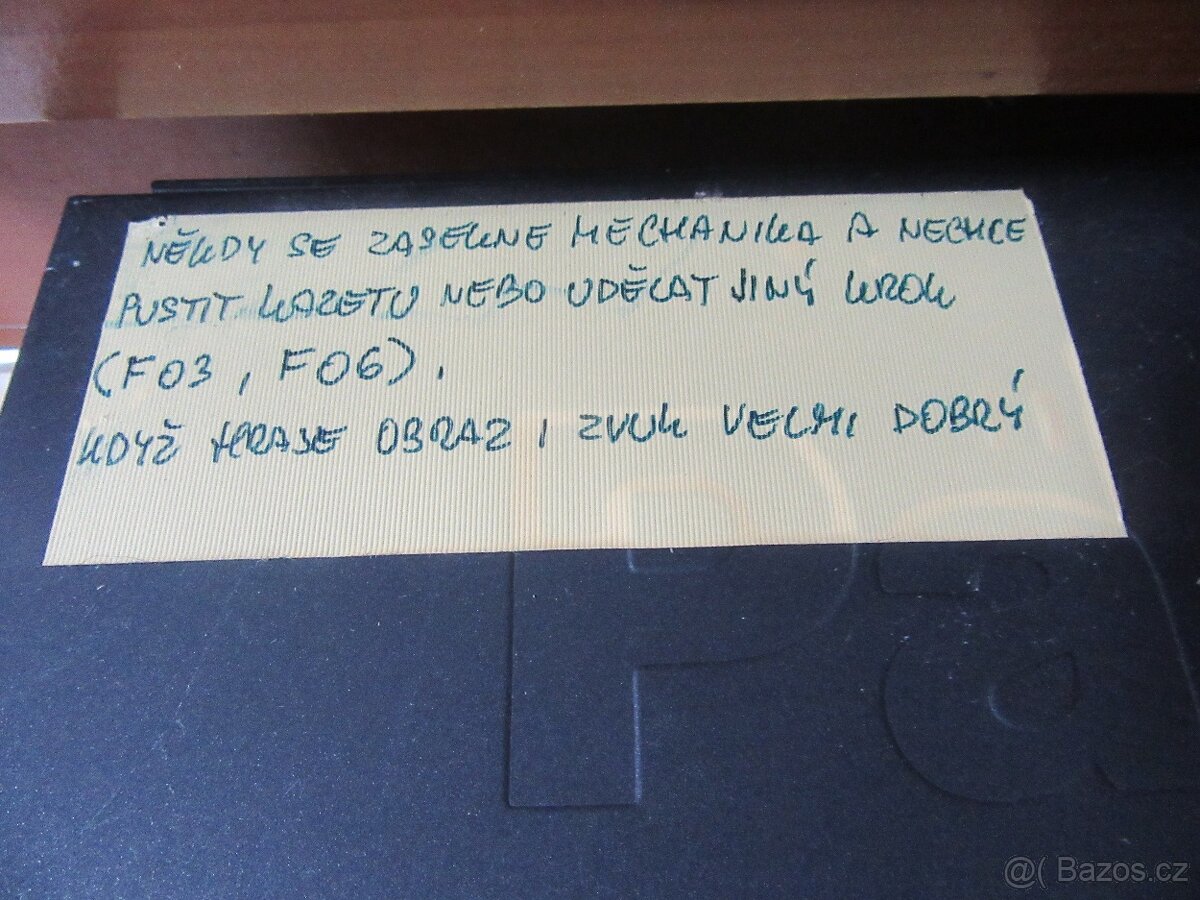 NĚKDY SE ZASEKNE MECHANIKA A NECHCE
PUSTIT KAZETU NEBO UDĚLAT JINÝ KROK
(F03, F06).
KDYŽ HRAJE OBRAZ I ZVUK VELMI DOBRÝ
Pa
@( Bazos.cz